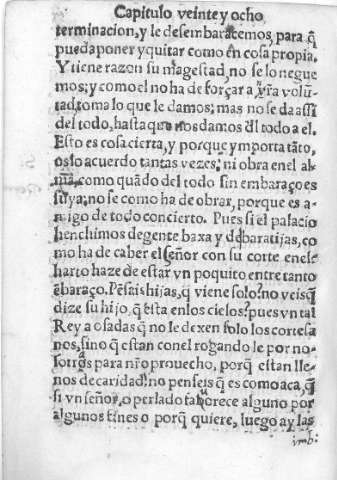 Capitulo veinte y ocho
terminacion, y le desembaracemos, para q̃
pueda poner y quitar como en cosa propia.
Y tiene razon su magestad, no se lo negue
mos; y como el no ha de forçar a ñr̃a volũ-
tad, toma lo que le damos; mas no se da assi
del todo, hasta que nos damos đl todo a el.
Esto es cosa cierta, y porque ymporta tãto,
os lo acuerdo tantas vezes; ni obra en el al-
ma, como quãdo del todo sin embaraço es
suya; no se como ha de obrar, porque es a-
migo de todo concierto. Pues si el palacio
henchimos de gente baxa y de baratijas, co
mo ha de caber el señor con su corte en el?
harto haze de estar vn poquito entre tanto
ẽbaraço. Pẽsais hijas, q̃ viene solo? no veis q̃
dize su hijo, q̃ esta en los cielos? pues vn tal
Rey a osadas q̃ no le dexen solo los cortesa
nos, sino q̃ estan con el rogando le por no-
sotros para nr̃o prouecho, porq̃ estan lle-
nos de caridad! no penseis q̃ es como aca, q̃
si vn señor, o perlado fauorece alguno por
algunos fines o porq̃ quiere, luego ay las
imb: